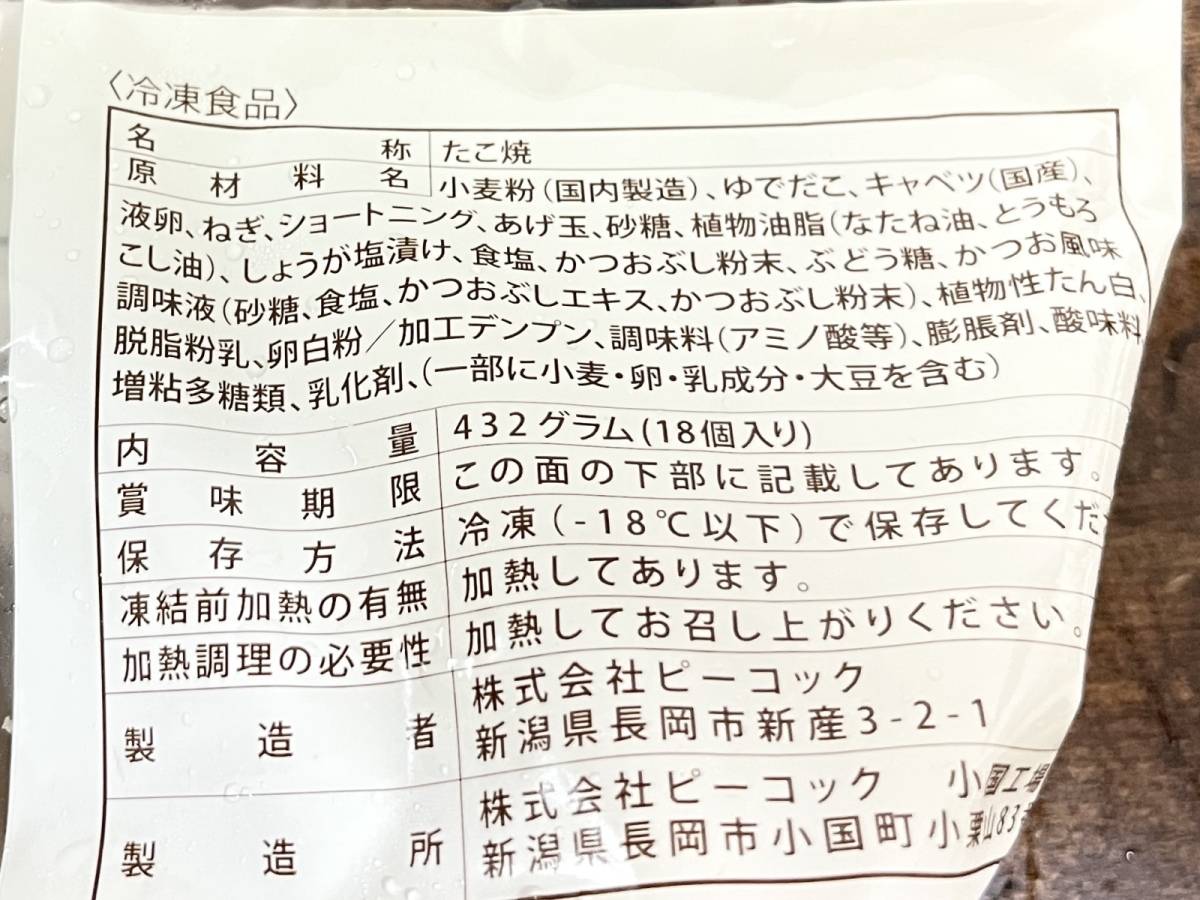 〈冷凍食品〉
名称 たこ焼
原材料名 小麦粉(国内製造)、ゆでだこ、キャベツ(国産)、
液卵、ねぎ、ショートニング、あげ玉、砂糖、植物油脂(なたね油、とうもろ
こし油)、しょうが塩漬け、食塩、かつおぶし粉末、ぶどう糖、かつお風味
調味液(砂糖、食塩、かつおぶしエキス、かつおぶし粉末)、植物性たん白、
脱脂粉乳、卵白粉/加工デンプン、調味料(アミノ酸等)、膨脹剤、酸味料、
増粘多糖類、乳化剤、(一部に小麦・卵・乳成分・大豆を含む)
内容量 432グラム(18個入り)
賞味期限 この面の下部に記載してあります。
保存方法 冷凍(-18℃以下)で保存してくだ
凍結前加熱の有無 加熱してあります。
加熱調理の必要性 加熱してお召し上がりください。
製造者 株式会社ピーコック
新潟県長岡市新産3-2-1
製造所 株式会社ピーコック 小国工場
新潟県長岡市小国町小栗山83